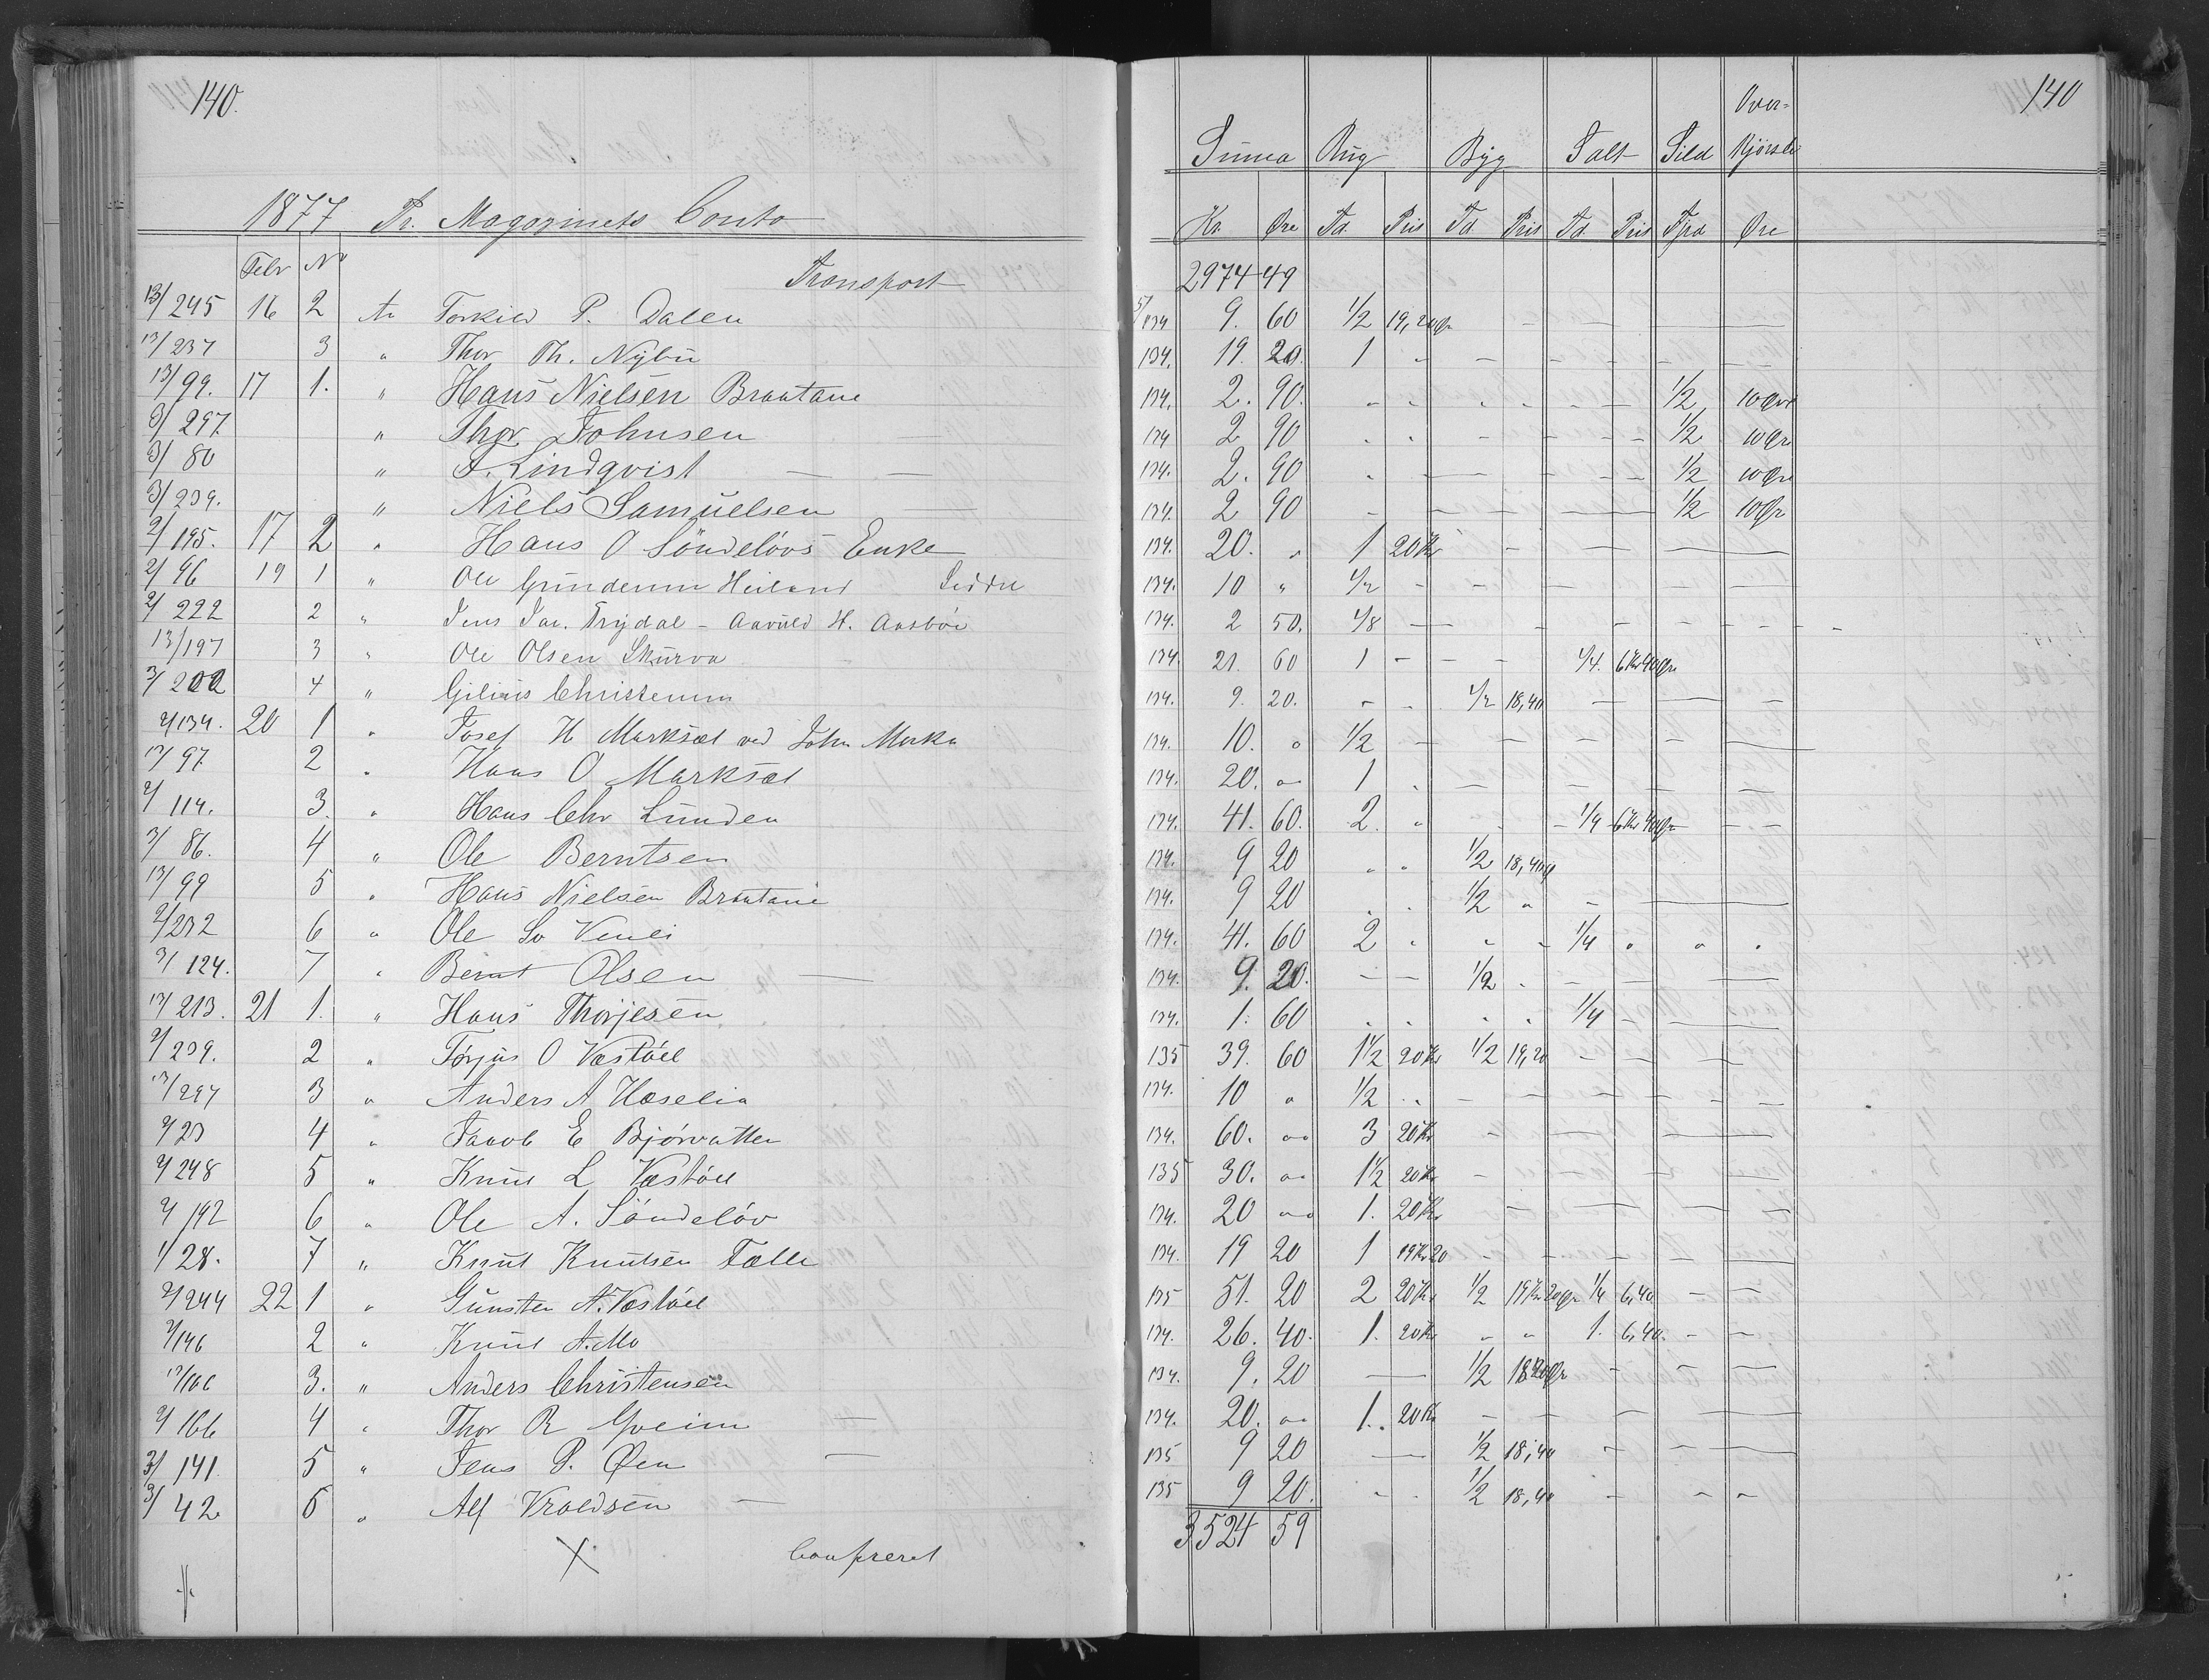 140.
1877 Pr. Magazinets Conto
Febr No
Transport
13/245 16 2 An Torkild P. Dalen
13/237 3 " Thor Th. Nybu
13/99. 17 1. " Hans Nielsen Braatane
3/297 " Thor Johnsen
3/80 " F. Lindqvist
3/239. " Niels Samuelsen
2/195. 17 2 " Hans O Söndelövs Enke
2/96 19 1 " Ole Heiland
2/222 2 " Jens Jac. Trydal - Aavuld H. Aasböe
13/197 3 " Ole Olsen Skurva
3/202 4 " Gilius Christensen
2/134. 20 1 " Josef H Marksæt ved John Merka
13/97 2 " Hans O Marksæt
2/114. 3. " Hans Chr Lunden
3/86. 4 " Ole Berntsen
13/99 5 " Hans Nielsen Braatane
2/232 6 " Ole Venli
3/124. 7 " Bernt Olsen
13/213. 21 1. " Hans Thorjesen
2/239. 2 " Törjus O Væstöll
13/297 3 " Anders A Hæselia
2/23 4 " Jacob E Bjórvatten
2/248 5 " Knut L Væstöll
2/192 6 " Ole A. Söndelöv
1/28. 7 " Knut Knutsen Tælle
2/244 22 1 " Gunsten A. Væstöll
2/146 2 " Knut A. Mo
13/106 3. " Anders Christensen
2/166 4 " Thor R Gveim
3/141 5 " Jens P. Øen
3/42. 6 " Alf Vroldsen
X Confereret
140
Summa Rug Byg Salt Sild Over-
kjørsel
Kr Øre Td. Pris Td. Pris Td. Pris Fjrd Øre
2974 49
5/134 9. 60 1/2 19,20 Ør
134. 19. 20. 1 "
134. 2. 90. 1/2 10 Øre
134 2 90 1/2 10 Ør
134. 2. 90 1/2 10 Øre
134. 2 90 1/2 10 Ør
134. 20. " 1 20 Kr
134. 10 " 1/2
134. 2 50. 1/8
134. 21. 60 1 1/4. 6 Kr 40 Ør
134. 9. 20. 1/2 18,40
134. 10. " 1/2
134. 20. " 1
134. 41. 60. 2. " 1/4 6 Kr 40 Ør
134. 9 20 " " 1/2 18,40
134. 9 20 1/2 "
134. 41. 60 2 " " " 1/4 " " "
134. 9. 20. 1/2
134. 1. 60 1/4
135 39. 60 1 1/2 20 Kr 1/2 19,20
134. 10 " 1/2
134. 60. " 3 20 Kr
135 30. " 1 1/2 20 Kr
134. 20 " 1. 20 Kr
134. 19 20 1 19 Kr 20
135 51. 20 2 20 Kr 1/2 19 Kr 20 Ør 1/4 6,40
134. 26. 40. 1. 20 Kr " " 1. 6,40.
134. 9. 20 1/2 18
134. 20. " 1. 20 Kr
135 9 20 1/2 18,40
135 9 20. 1/2 18,40
3524 59